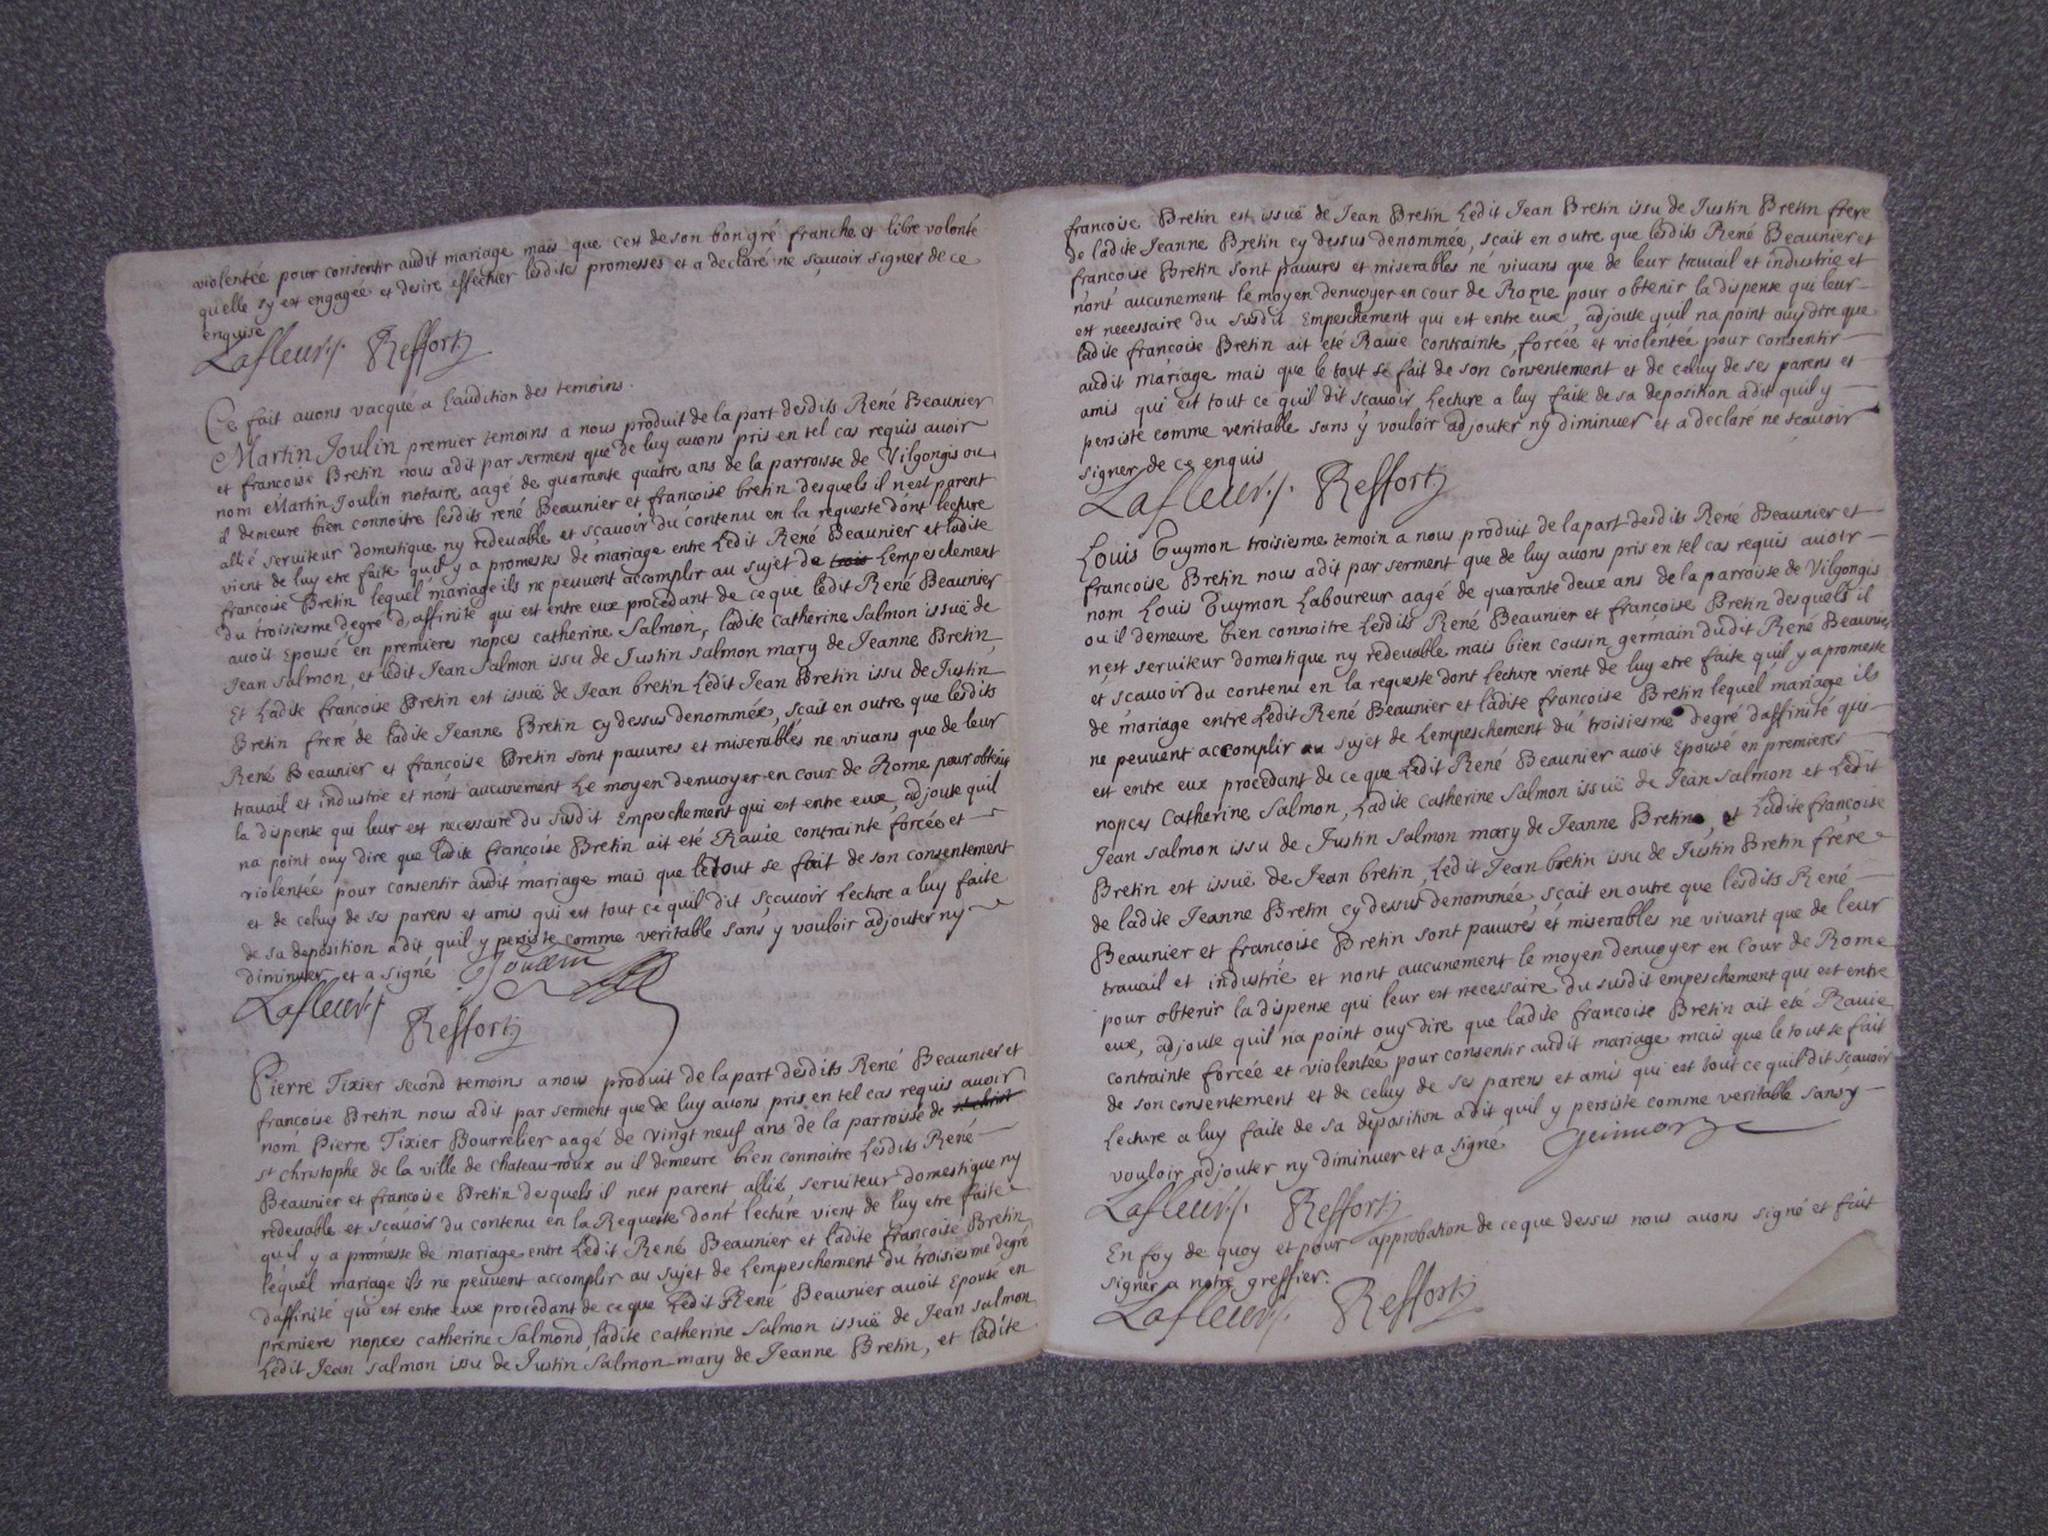 violentée pour consentir audit mariage mais que cest de son bon gré franche et libre volonté
quelle sy est engagée et desire effectuer lesdites promesses et a declaré ne sçauoir signer de ce
enquise
Lafleur Reffort
Ce fait auons vacqué a laudition des temoins.
Martin Joulin premier temoins a nous produit de la part desdits René Beaunier
et francoise Bretin nous a dit par serment que de luy auons pris en tel cas requis auoir
nom Martin Joulin notaire aagé de quarante quatre ans de la parroisse de Vilgongis ou
il demeure bien connoitre lesdits rené Beaunier et francoise bretin desquels il nest parent
allié seruiteur domestique ny redeuable et sçauoir du contenu en la requeste dont lecture
vient de luy etre faite quil y a promesses de mariage entre Ledit René Beaunier et ladite
francoise Bretin lequel mariage ils ne peuuent accomplir au sujet de trois Lempeschement
du troisiesme degré d'affinité qui est entre eux procedant de ce que ledit René Beaunier
auoit Epousé en premieres nopces catherine Salmon, ladite catherine Salmon issuë de
Jean Salmon, et ledit Jean Salmon issu de Justin Salmon mary de Jeanne Bretin,
Et Ladite francoise Bretin est issuë de Jean bretin Ledit Jean Bretin issu de Justin
Bretin frere de ladite Jeanne Bretin cy dessus denommée, sçait en outre que lesdits
René Beaunier et francoise Bretin sont pauures et miserables ne viuans que de leur
trauail et industrie et nont aucunement Le moyen denuoyer en cour de Rome pour obtenir
la dispense qui leur est necessaire du susdit Empeschement qui est entre eux, adjoute quil
na point ouy dire que ladite francoise Bretin ait eté Rauie contrainte forcée et
violentée pour consentir audit mariage mais que le tout se fait de son consentement
et de celuy de ses parens et amis qui est tout ce quil dit sçauoir Lecture a luy faite
de sa deposition a dit quil y persiste comme veritable sans y vouloir adjouter ny
diminuer et a signé Joulin
Lafleur
Reffort
Pierre Tixier second temoins a nous produit de la part desdits René Beaunier et
francoise Bretin nous a dit par serment que de luy auons pris en tel cas requis auoir
nom Pierre Tixier Bourrelier aagé de vingt neuf ans de la parroisse de st christ
st christophe de la ville de chateau-roux ou il demeure bien connoitre Lesdits René
Beaunier et francoise Bretin desquels il nest parent allié seruiteur domestique ny
redeuable et scauoir du contenu en la Requeste dont lecture vient de luy etre faite
quil y a promesse de mariage entre Ledit René Beaunier et ladite francoise Bretin
lequel mariage ils ne peuuent accomplir au sujet de Lempeschement du troisiesme degré
daffinité qui est entre eux procedant de ce que Ledit René Beaunier auoit Epousé en
premiere nopces catherine Salmond, ladite catherine Salmon issuë de Jean salmon
Ledit Jean salmon issu de Justin Salmon mary de Jeanne Bretin, et ladite
francoise Bretin est issuë de Jean Bretin Ledit Jean Bretin issu de Justin Bretin frere
de ladite Jeanne Bretin cy dessus denommée, sçait en outre que lesdits René Beaunier et
francoise Bretin sont pauures et miserables né viuans que de leur trauail et industrie et
nont aucunement le moyen denuoyer en cour de Rome pour obtenir la dispense qui leur
est necessaire du susdit Empeschement qui est entre eux, adjoute quil na point ouy dire que
ladite francoise Bretin ait eté Rauie contrainte, forcée et violentée pour consentir
audit mariage mais que le tout se fait de son consentement et de celuy de ses parens et
amis qui est tout ce quil dit scauoir Lecture a luy faite de sa deposition a dit quil y
persiste comme veritable sans y vouloir adjouter ny diminuer et a declaré ne scauoir
signer de ce enquis
Lafleur Reffort
Louis Guymon troisiesme temoin a nous produit de la part desdits René Beaunier et
francoise Bretin nous a dit par serment que de luy auons pris en tel cas requis auoir
nom Louis Guymon Laboureur aagé de quarante deux ans de la parroisse de Vilgongis
ou il demeure bien connoitre Lesdits René Beaunier et francoise Bretin desquels il
nest seruiteur domestique ny redeuable mais bien cousin germain dudit René Beaunier
et scauoir du contenu en la requeste dont Lecture vient de luy etre faite quil y a promesse
de mariage entre Ledit René Beaunier et ladite francoise Bretin lequel mariage ils
ne peuuent accomplir au sujet de Lempeschement du troisiesme degré daffinité qui
est entre eux procedant de ce que Ledit René Beaunier auoit Epousé en premieres
nopces Catherine Salmon, Ladite Catherine Salmon issuë de Jean Salmon et Ledit
Jean Salmon issu de Justin Salmon mary de Jeanne Bretin, et Ladite francoise
Bretin est issuë de Jean bretin, Ledit Jean bretin issu de Justin Bretin frere
de ladite Jeanne Bretin cy dessus denommée, sçait en outre que lesdits René
Beaunier et francoise Bretin sont pauures et miserables ne viuant que de leur
trauail et industrie et nont aucunement le moyen denuoyer en Cour de Rome
pour obtenir la dispense qui leur est necessaire du susdit empeschement qui est entre
eux, adjoute quil na point ouy dire que ladite francoise Bretin ait eté Rauie
contrainte forcée et violentée pour consentir audit mariage mais que le tout se fait
de son consentement et de celuy de ses parens et amis qui est tout ce quil dit sçauoir
Lecture a luy faite de sa deposition a dit quil y persiste comme veritable sans y
vouloir adjouter ny diminuer et a signé Guimon
Lafleur Reffort
En foy de quoy et pour approbation de ce que dessus nous auons signé et fait
signer a notre greffier.
Lafleur Reffort